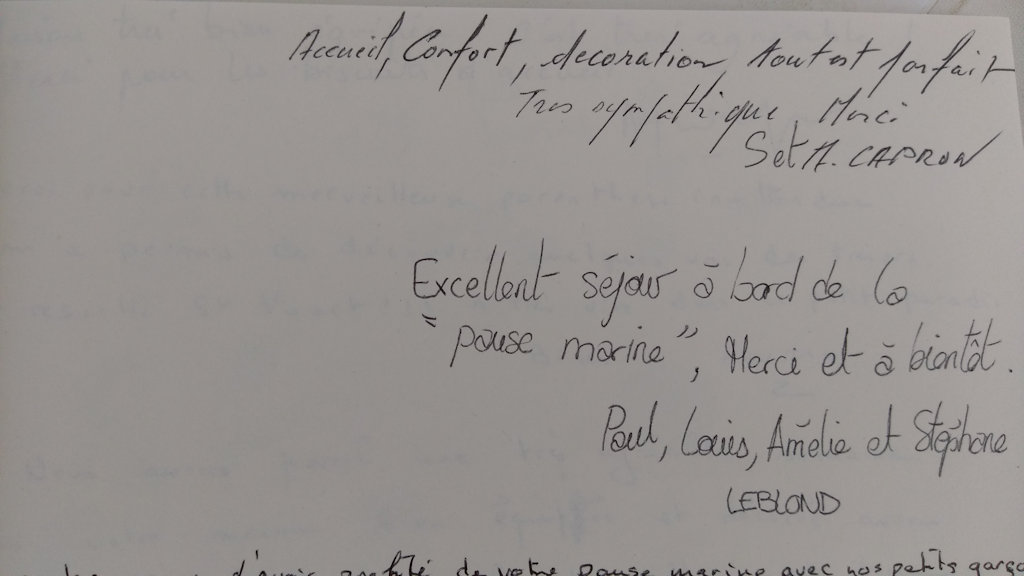 Accueil, Confort, decoration, tout est parfait
Tres sympathique, Merci
S et A. CAPRON
Excellent séjour à bord de la
"pause marine", Merci et à bientôt.
Paul, Louis, Amélie et Stéphane
LEBLOND
d'avoir profité de votre pause marine avec nos petits garço